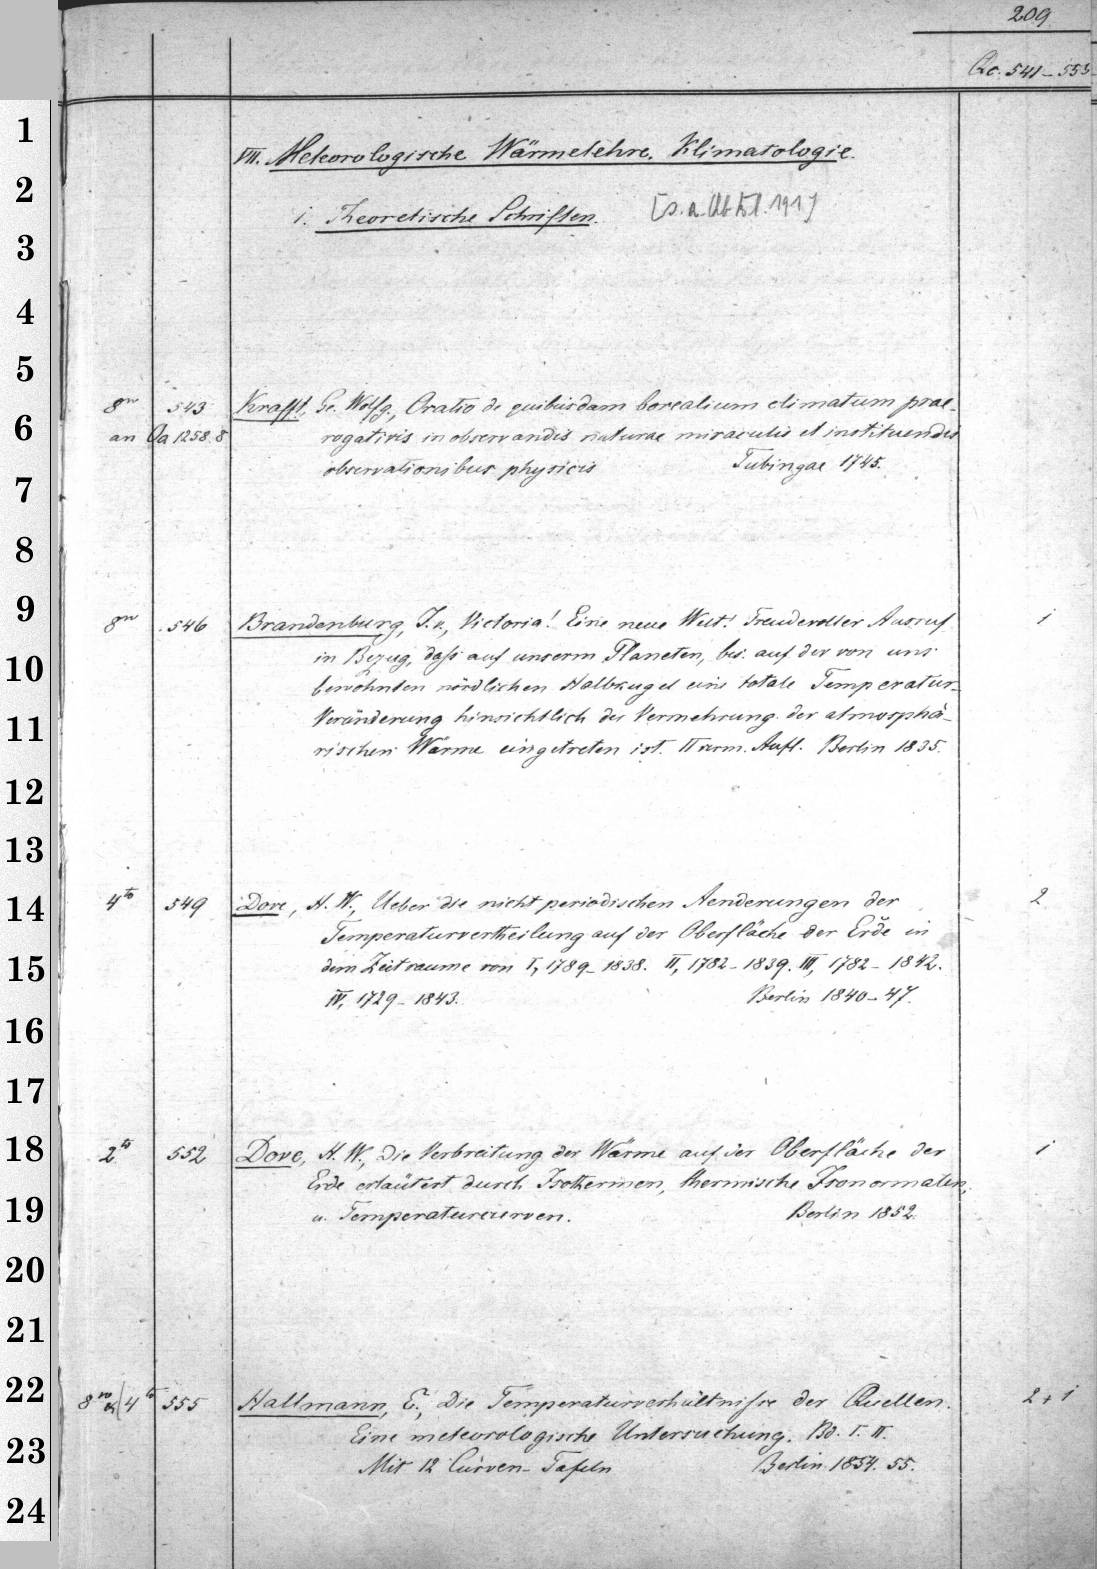 209
Qc. 541-555
VII. Meteorologische Wärmelehre. Klimatologie.
1. Theoretische Schriften. [s. a. Abt.
8vo 543 Krafft, Ge. Wolfg., Oratio de quibusdam borealium climatum prae-
an Oa 1258, 8 rogativis in observandis naturae miraculis et instituendis
observationibus physicis Tubingae 1745.
8vo 546 Brandenburg, F. v., Victoria! Eine neue Welt! Freudevoller Ausruf 1
in Bezug, daß auf unserm Planeten, bes. auf der von uns
bewohnten nördlichen Halbkugel eine totale Temperatur-
Veränderung hinsichtlich der Vermehrung der atmosphä-
rischen Wärme eingetreten ist. II verm. Aufl. Berlin 1835.
4to 549 Dove, H. W., Ueber die nicht periodischen Aenderungen der 2
Temperaturvertheilung auf der Oberfläche der Erde in
dem Zeitraume von I, 1789-1838. II, 1782-1839. III, 1782-1842.
IV, 1729-1843. Berlin 1840-47.
2to 552 Dove, H. W., Die Verbreitung der Wärme auf der Oberfläche der 1
Erde erläutert durch Isothermen, thermische Isonormalen,
u. Temperaturcurven. Berlin 1852.
8vo & 4to 555 Hallmann, E., Die Temperaturverhältnisse der Quellen. 2+1
Eine meteorologische Untersuchung. Bd. I. II.
Mit 12 Curven-Tafeln Berlin 1854. 55.
1
2
3
4
5
6
7
8
9
10
11
12
13
14
15
16
17
18
19
20
21
22
23
24